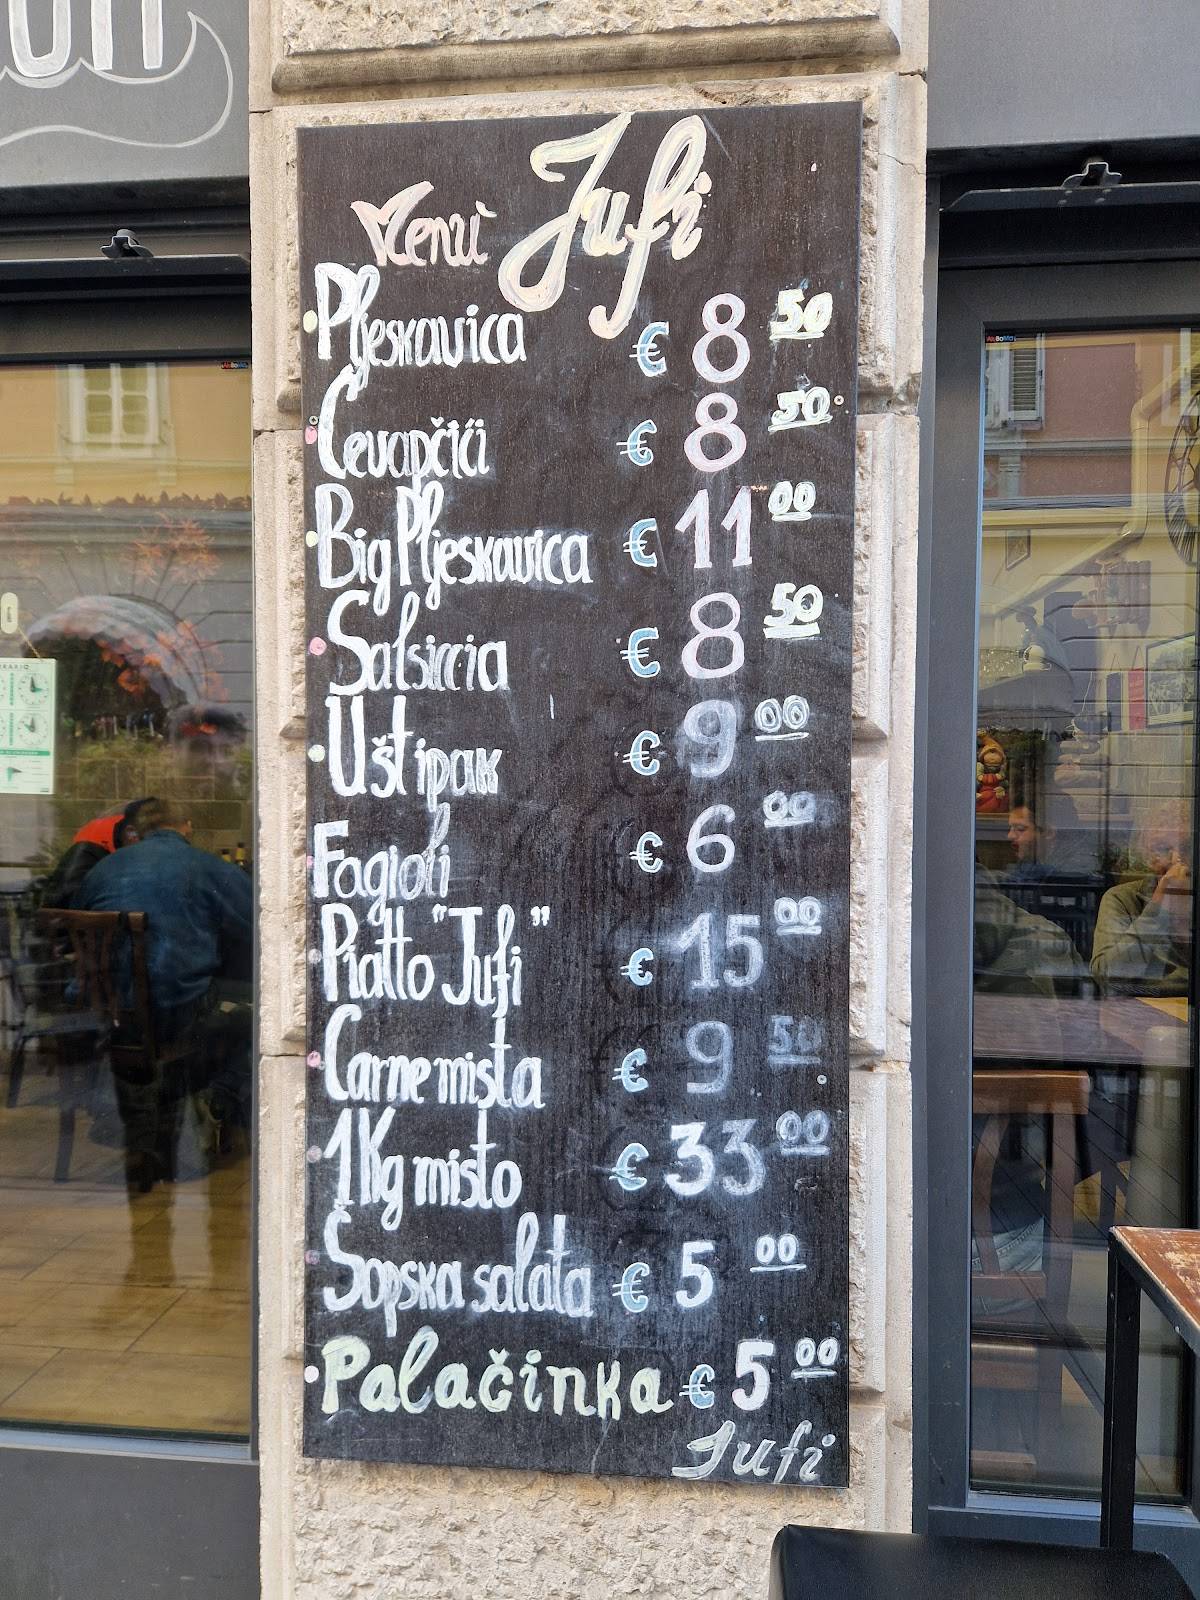 Menù Jufi
Pljeskavica € 8 50
Cevapčići € 8 50
Big Pljeskavica € 11 00
Salsiccia € 8 50
Uštipak € 9 00
Fagioli € 6 00
Piatto "Jufi" € 15 00
Carne mista € 9 50
1Kg misto € 33 00
Šopska salata € 5 00
Palačinka € 5 00
Jufi